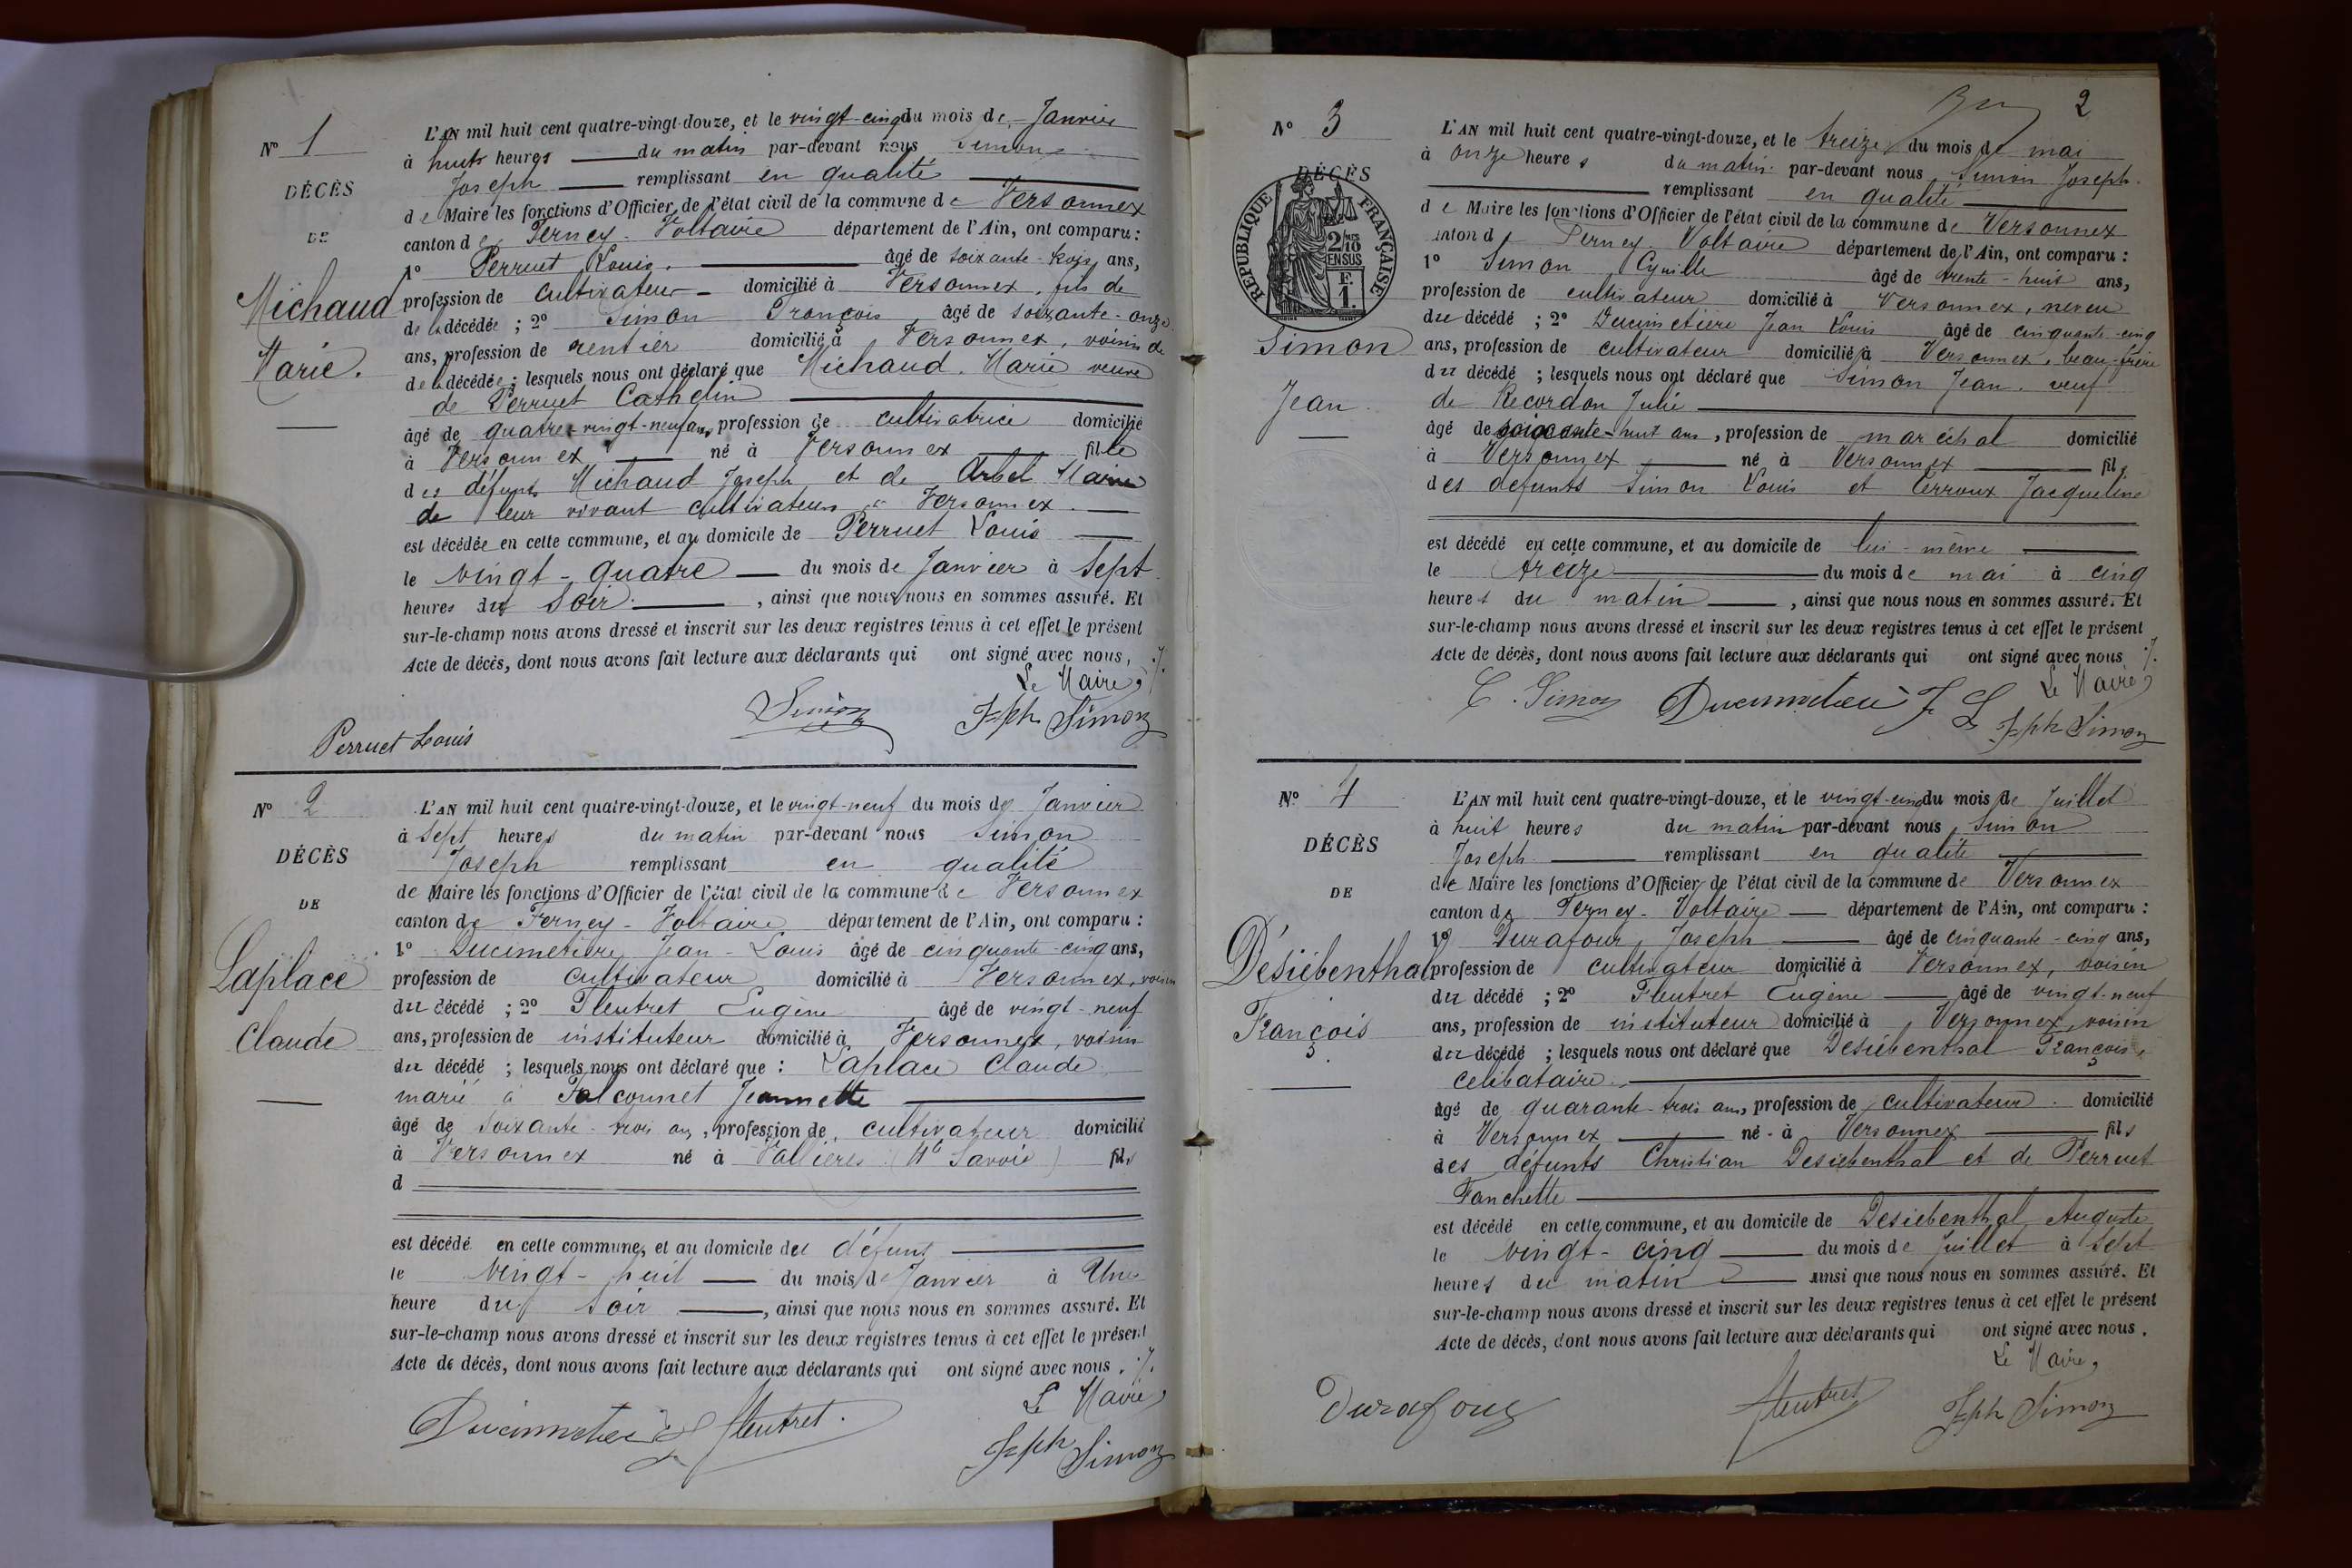 Nº 1
DÉCÈS
DE
Michaud
Marie.
L'AN mil huit cent quatre-vingt-douze, et le vingt-cinq du mois de Janvier
à huit heures du matin par-devant nous Simon
Joseph remplissant en qualité
de Maire les fonctions d'Officier de l'état civil de la commune de Versonnex
canton de Ferney-Voltaire département de l'Ain, ont comparu :
1º Perruet Louis. âgé de soixante-trois ans,
profession de cultivateur domicilié à Versonnex, fils de
de la décédée ; 2º Simon François âgé de soixante-onze
ans, profession de rentier domicilié à Versonnex, voisin de
de la décédée ; lesquels nous ont déclaré que Michaud Marie veuve
de Perruet Cathelin
âgé de quatre-vingt-neuf ans, profession de cultivatrice domicilié
à Versonnex né à Versonnex fille
des défunts Michaud Joseph et de Arbel Marie
de leur vivant cultivateurs à Versonnex.
est décédée en cette commune, et au domicile de Perruet Louis
le vingt-quatre du mois de Janvier à Sept
heures du Soir, ainsi que nous nous en sommes assuré. Et
sur-le-champ nous avons dressé et inscrit sur les deux registres tenus à cet effet le présent
Acte de décès, dont nous avons fait lecture aux déclarants qui ont signé avec nous,
Le Maire,
Perruet Louis Simon Jph Simon
Nº 2
DÉCÈS
DE
Laplace
Claude
L'AN mil huit cent quatre-vingt-douze, et le vingt-neuf du mois de Janvier
à Sept heures du matin par-devant nous Simon
Joseph remplissant en qualité
de Maire les fonctions d'Officier de l'état civil de la commune de Versonnex
canton de Ferney-Voltaire département de l'Ain, ont comparu :
1º Ducimetière Jean-Louis âgé de cinquante-cinq ans,
profession de cultivateur domicilié à Versonnex, voisin
du décédé ; 2º Fleutret Eugène âgé de vingt-neuf
ans, profession de instituteur domicilié à Versonnex, voisin
du décédé ; lesquels nous ont déclaré que : Laplace Claude
marié à Falconnet Jeannette
âgé de soixante-trois ans, profession de cultivateur domicilié
à Versonnex né à Vallières (Hte Savoie) fils
d
est décédé en cette commune, et au domicile du défunt
le vingt-huit du mois de Janvier à Une
heure du Soir, ainsi que nous nous en sommes assuré. Et
sur-le-champ nous avons dressé et inscrit sur les deux registres tenus à cet effet le présent
Acte de décès, dont nous avons fait lecture aux déclarants qui ont signé avec nous.
Le Maire,
Fleutret. Jph Simon
2
Nº 3
DÉCÈS
RÉPUBLIQUE FRANÇAISE
2/10 EN SUS
F. 1.
Simon
Jean
L'AN mil huit cent quatre-vingt-douze, et le treize du mois de mai
à onze heures du matin par-devant nous Simon Joseph
remplissant en qualité
de Maire les fonctions d'Officier de l'état civil de la commune de Versonnex
canton de Ferney-Voltaire département de l'Ain, ont comparu :
1º Simon Cyrille âgé de trente-huit ans,
profession de cultivateur domicilié à Versonnex, neveu
du décédé ; 2º Ducimetière Jean Louis âgé de cinquante-cinq
ans, profession de cultivateur domicilié à Versonnex, beau-frère
du décédé ; lesquels nous ont déclaré que Simon Jean, veuf
de Recordon Julie
âgé de soixante-huit ans, profession de maréchal domicilié
à Versonnex né à Versonnex fils
des défunts Simon Louis et Perroux Jacqueline
est décédé en cette commune, et au domicile de lui-même
le treize du mois de mai à cinq
heures du matin, ainsi que nous nous en sommes assuré. Et
sur-le-champ nous avons dressé et inscrit sur les deux registres tenus à cet effet le présent
Acte de décès, dont nous avons fait lecture aux déclarants qui ont signé avec nous
Le Maire,
C. Simon J L Jph Simon
Nº 4
DÉCÈS
DE
Désiébenthal
François
L'AN mil huit cent quatre-vingt-douze, et le vingt-cinq du mois de Juillet
à huit heures du matin par-devant nous Simon
Joseph remplissant en qualité
de Maire les fonctions d'Officier de l'état civil de la commune de Versonnex
canton de Ferney-Voltaire département de l'Ain, ont comparu :
1º Durafour Joseph âgé de cinquante-cinq ans,
profession de cultivateur domicilié à Versonnex, voisin
du décédé ; 2º Fleutret Eugène âgé de vingt-neuf
ans, profession de instituteur domicilié à Versonnex, voisin
du décédé ; lesquels nous ont déclaré que Desiébenthal François,
célibataire
âgé de quarante-trois ans, profession de cultivateur domicilié
à Versonnex né à Versonnex fils
des défunts Christian Desiebenthal et de Perruet
Fanchette
est décédé en cette commune, et au domicile de Desiebenthal Auguste
le vingt-cinq du mois de Juillet à Sept
heures du matin ainsi que nous nous en sommes assuré. Et
sur-le-champ nous avons dressé et inscrit sur les deux registres tenus à cet effet le présent
Acte de décès, dont nous avons fait lecture aux déclarants qui ont signé avec nous.
Le Maire,
Durafour Fleutret Jph Simon